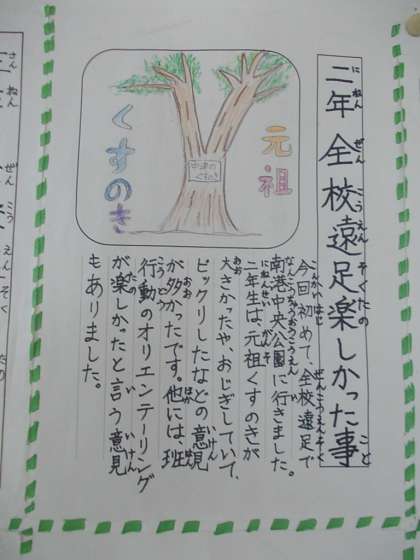 二年 全校遠足楽しかった事
にねん ぜんこうえんそくたの こと
元祖
くすのき
今回初めて、全校遠足で
南港中央公園に行きました。
二年生は、元祖くすのきが
大きかったや、おじぎしていて、
ビックリしたなどの意見
が多かったです。他には、班
行動のオリエンテーリング
が楽しかったと言う意見
もありました。